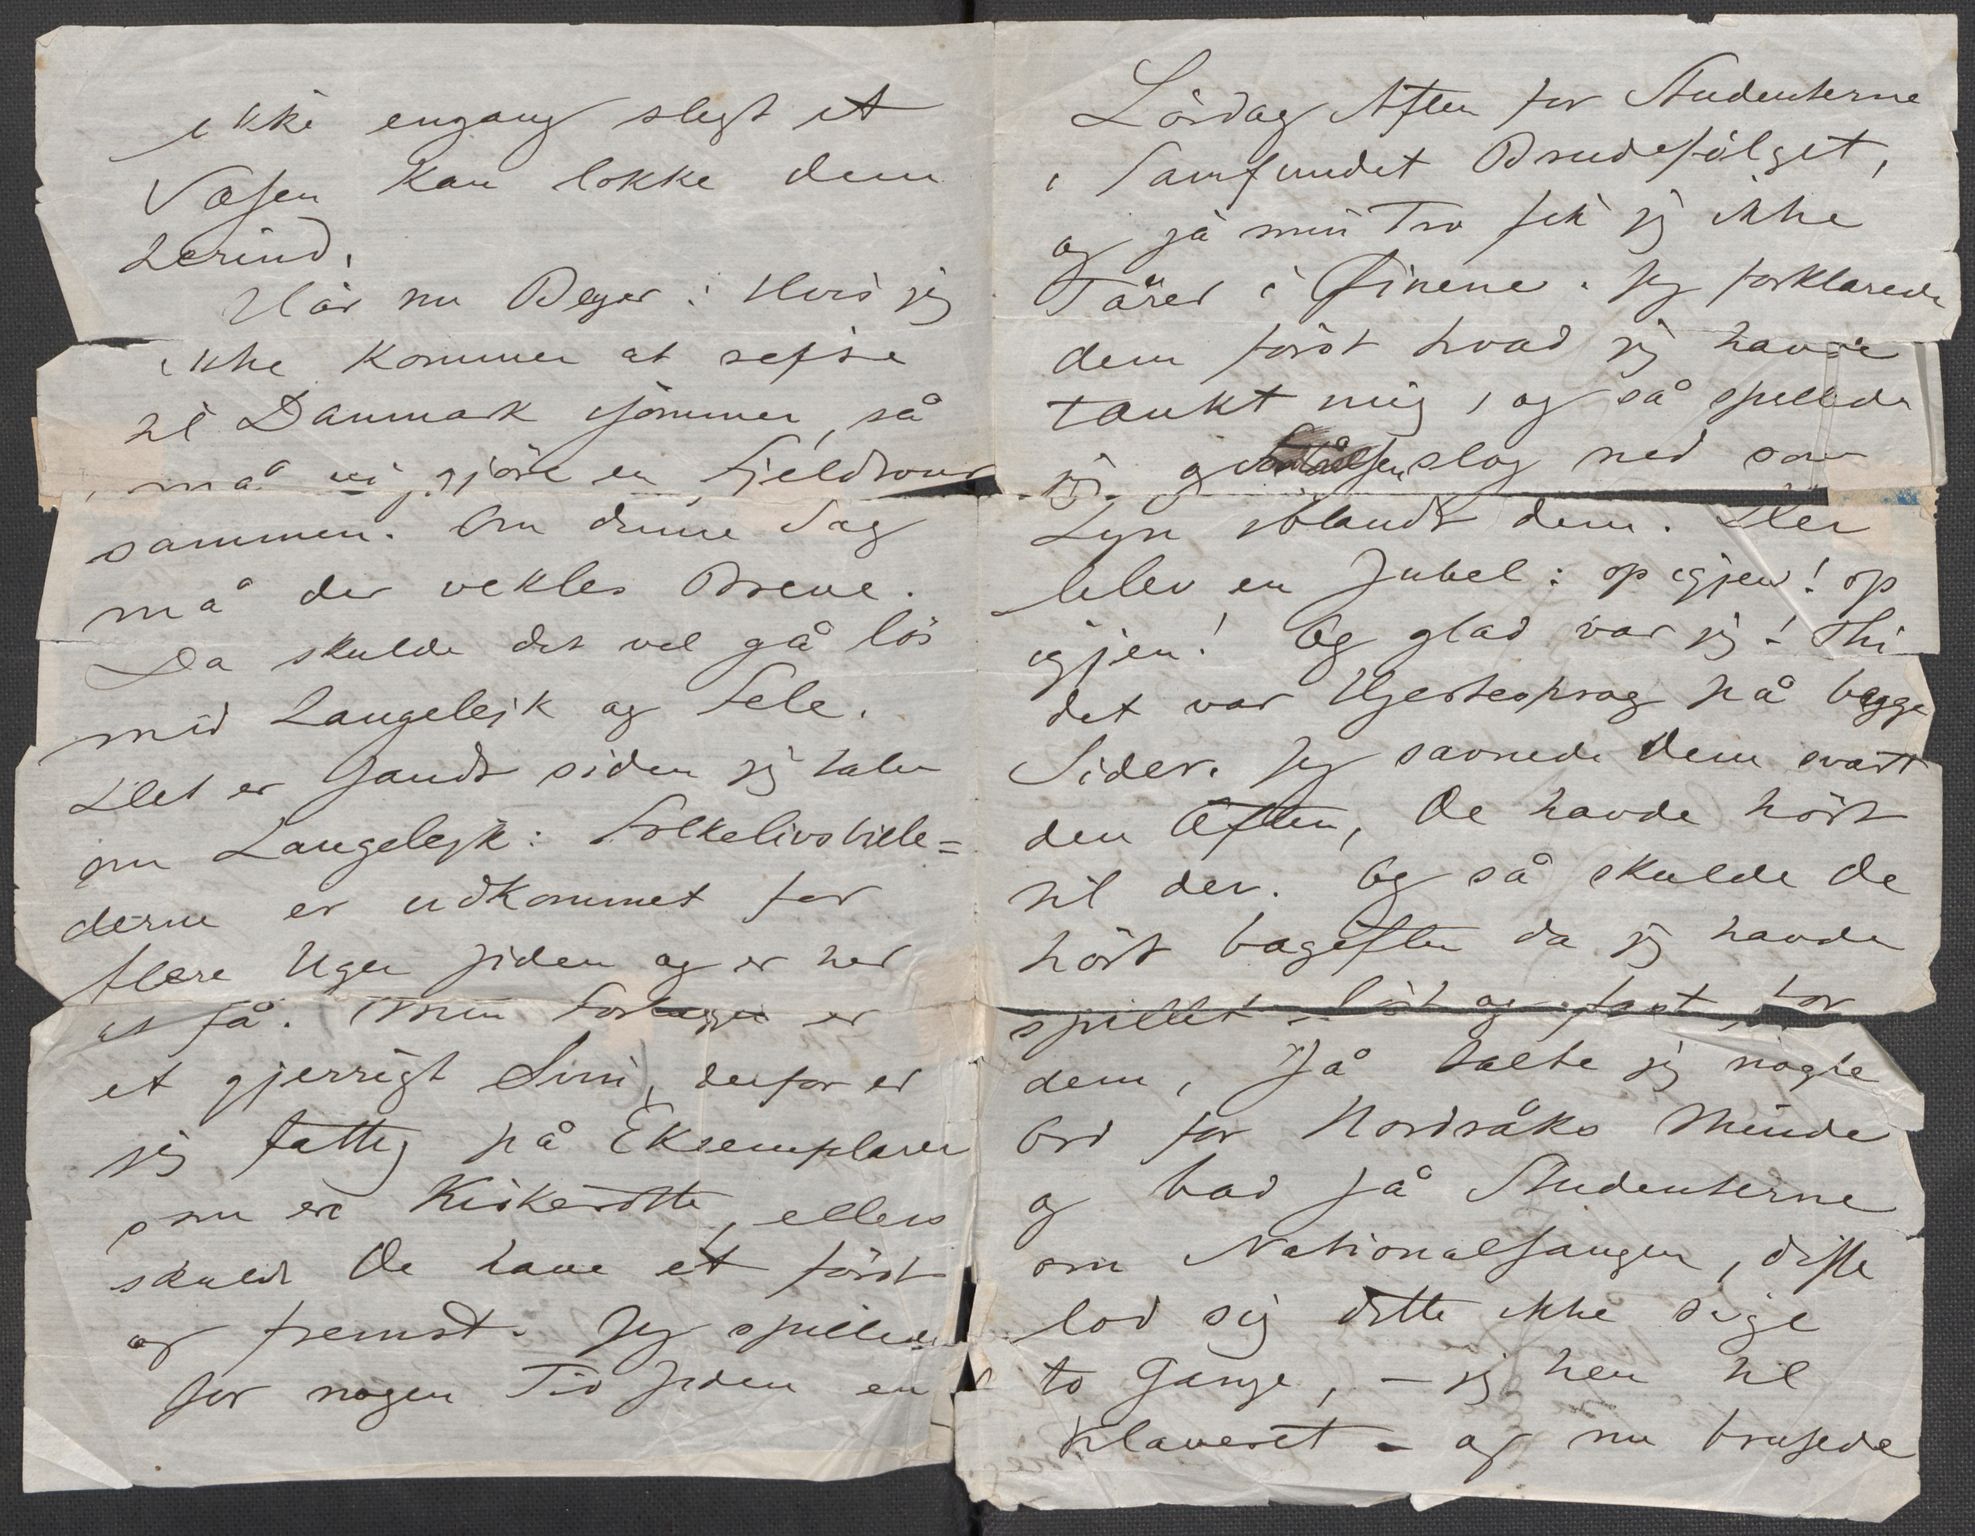 ikke engang slegt et
Væsen kan lokke dem
herind.
Hör nu Beyer: Hvis jeg
ikke kommer at rejse
til Danmark isommer, så
må vi gjöre en Fjeldtour
sammen. Om denne Sag
må der vekles Breve.
Da skulde det vel gå lös
med Langelejk og Fele.
Det er sandt siden jeg taler
om Langelejk: Folkelivsbille=
derne er udkommet for
flere Uger siden og er her
at få. Min Forlægger er
et gjerrigt Svin, derfor er
jeg fattig på Eksemplarer
som en Kirkerotte, ellers
skulde De have et först
og fremst. Jeg spillede
for nogen Tid siden en
Lördag Aften for Studenterne
i Samfundet Brudefölget,
og på min Tro fik jeg ikke
Tårer i Øinene. Jeg forklarede
dem först hvad jeg havde
tænkt mig, og så spillede
jeg og slog ned som
Lyn iblandt dem. Der
blev en Jubel: op igjen! op
igjen! Og glad var jeg! Thi
det var Hjertesprog på begge
Sider. Jeg savnede Dem svært
den Aften, De havde hört
til der. Og så skulde De
hört bagefter da jeg havde
spillet löst og fast for
dem, så talte jeg nogle
Ord for Nordråks Minde
og bad så Studenterne
om Nationalsangen, disse
lod sig dette ikke sige
to Gange, – jeg hen til
Klaveret – og nu brusede